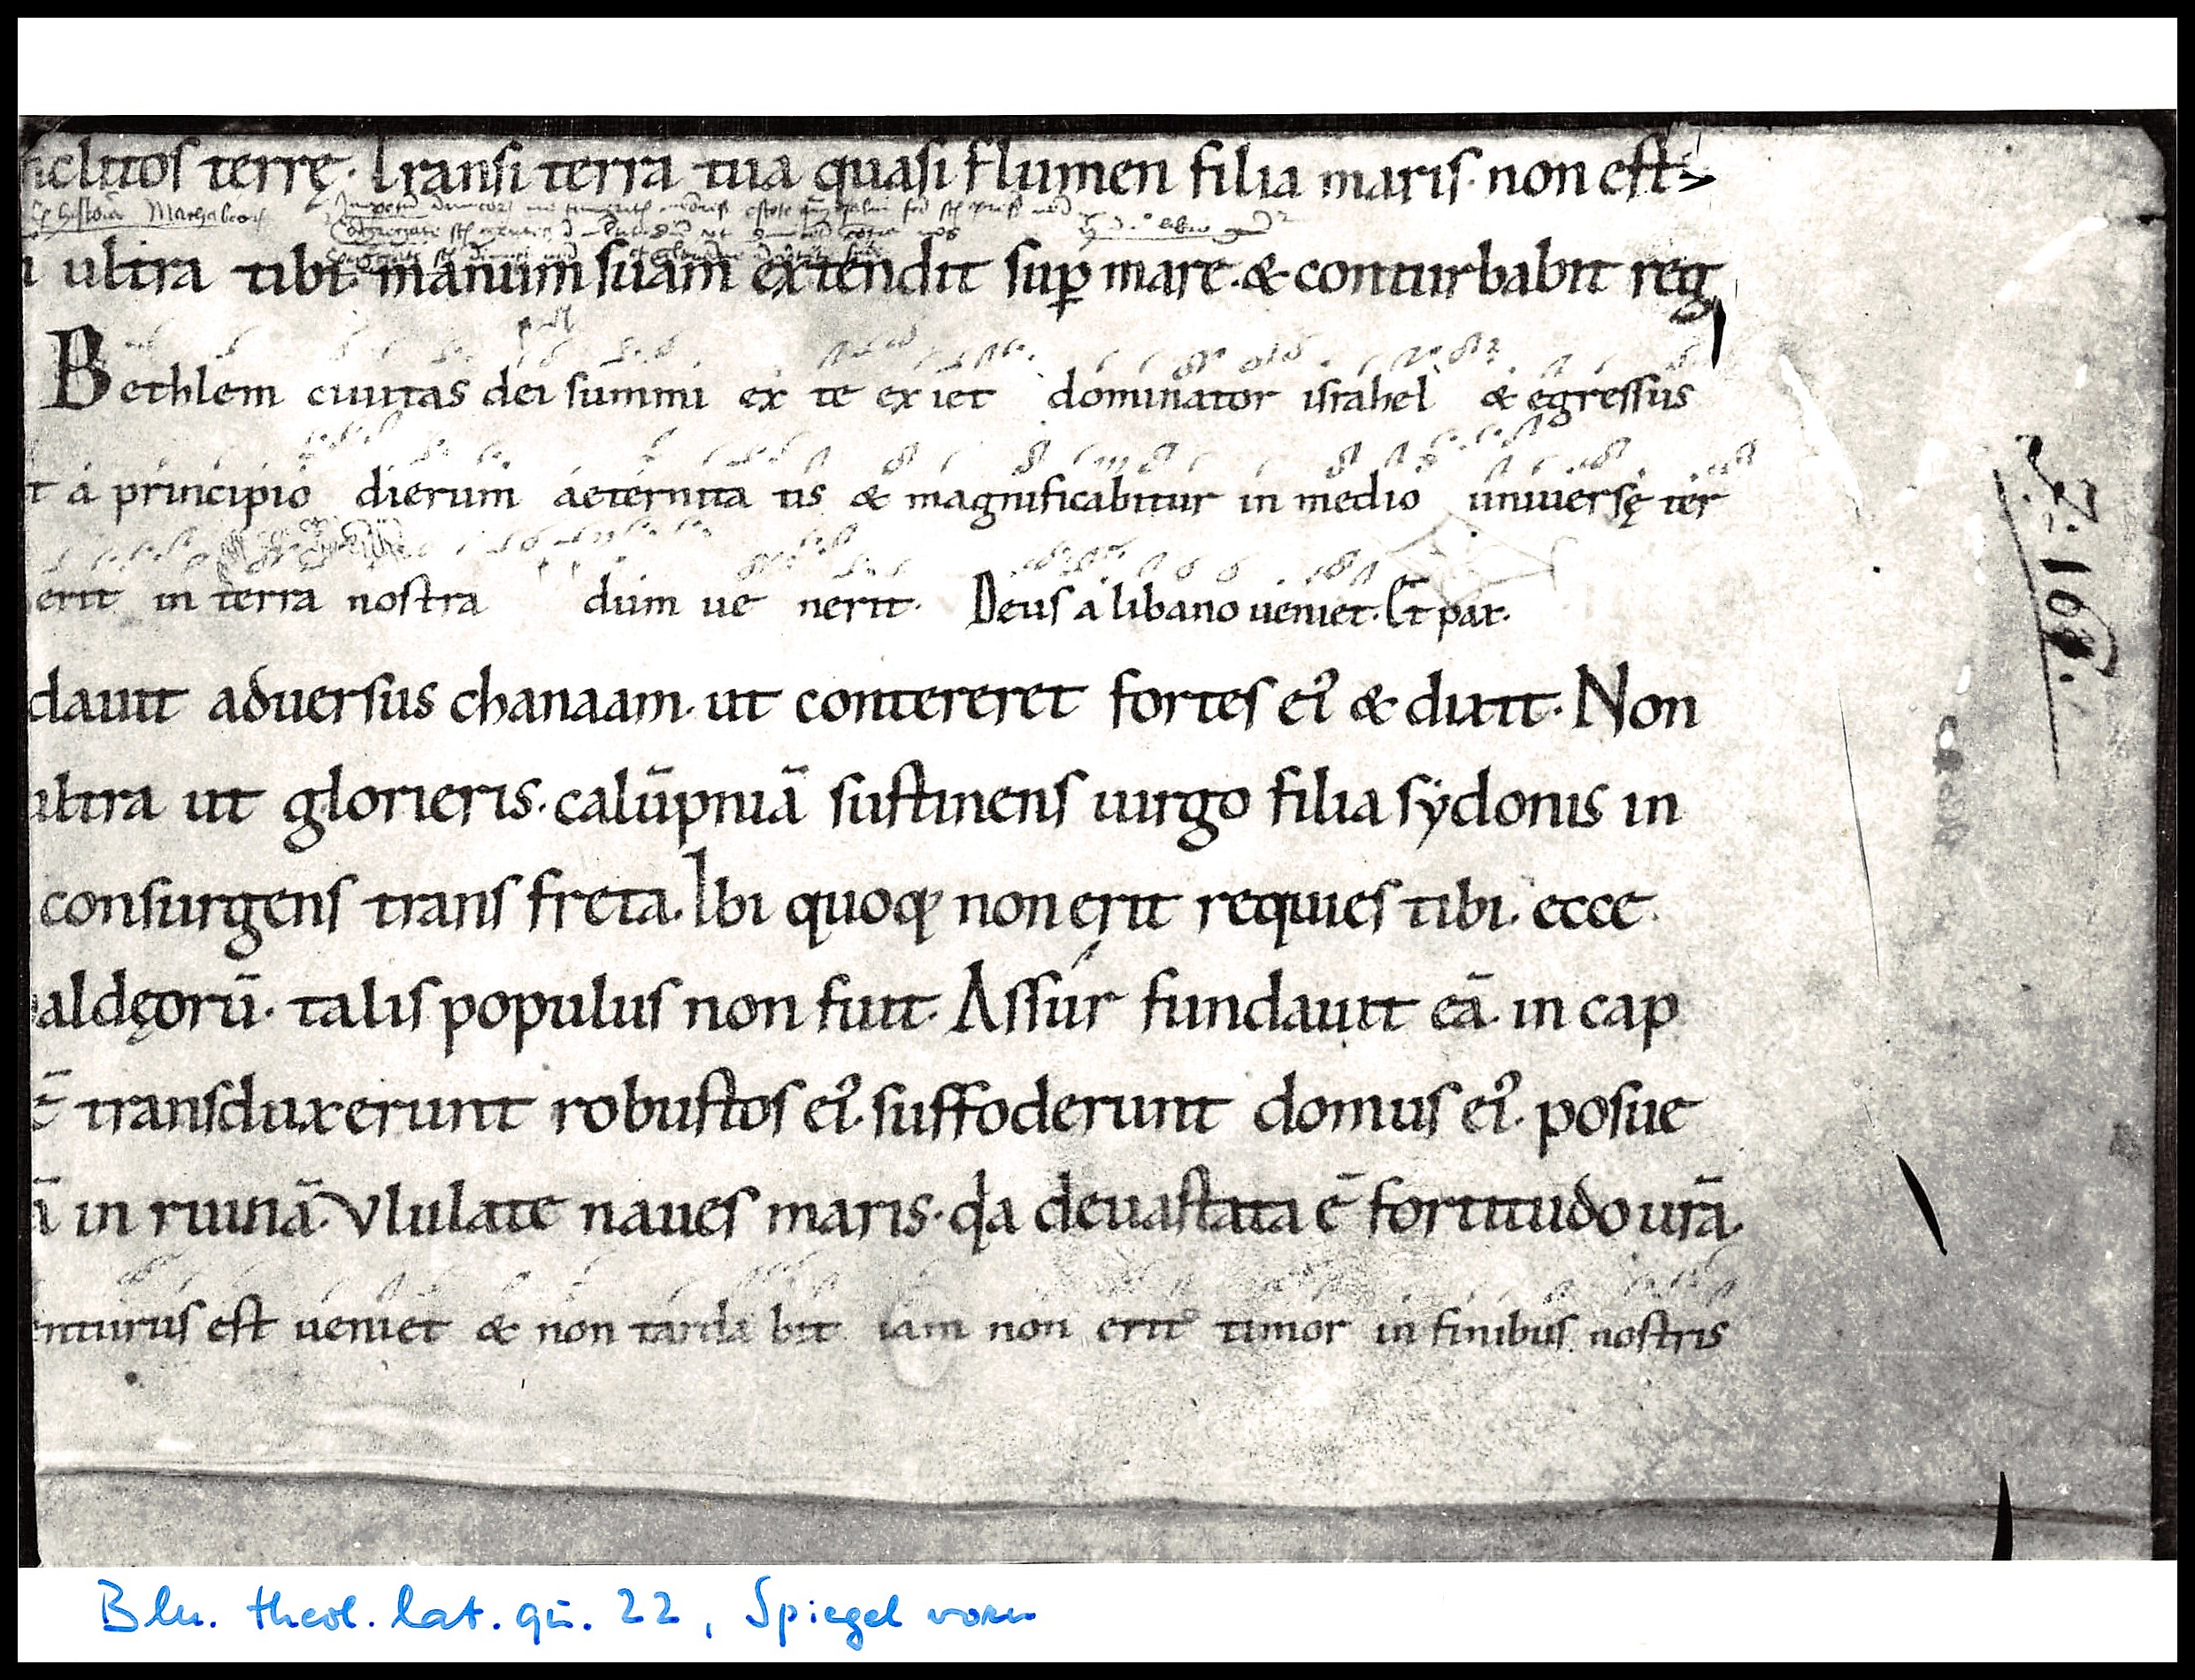 nclitos terrę. Transi terra tua quasi flumen filia maris. non est
historia Machabeor
ultra tibi. manum suam extendit sup mare. & conturbabit reg
Bethlem ciuitas dei summi ex te exiet dominator israhel & egressus
t a principio dierum aeternita tis & magnificabitur in medio uniuersę ter
erit in terra nostra dum ue nerit. Deus a libano ueniet. Et pax.
dauit aduersus chanaam. ut contereret fortes ei᾽ & dixit. Non
ultra ut glorieris. calūpniā sustinens uirgo filia sydonis in
consurgens transfreta. Ibi quoq; non erit requies tibi. ecce
aldęorū. talis populus non fuit. Assur fundauit eā. in cap
transduxerunt robustos ei᾽. suffoderunt domus ei᾽. posue
ā in ruinā. Vlulate naues maris. qa deuastata ē fortitudo urā.
enturus est ueniet & non tarda bit iam non erit timor in finibus nostris
Z: 106.
Bln. theol. lat. qu. 22, Spiegel vorn